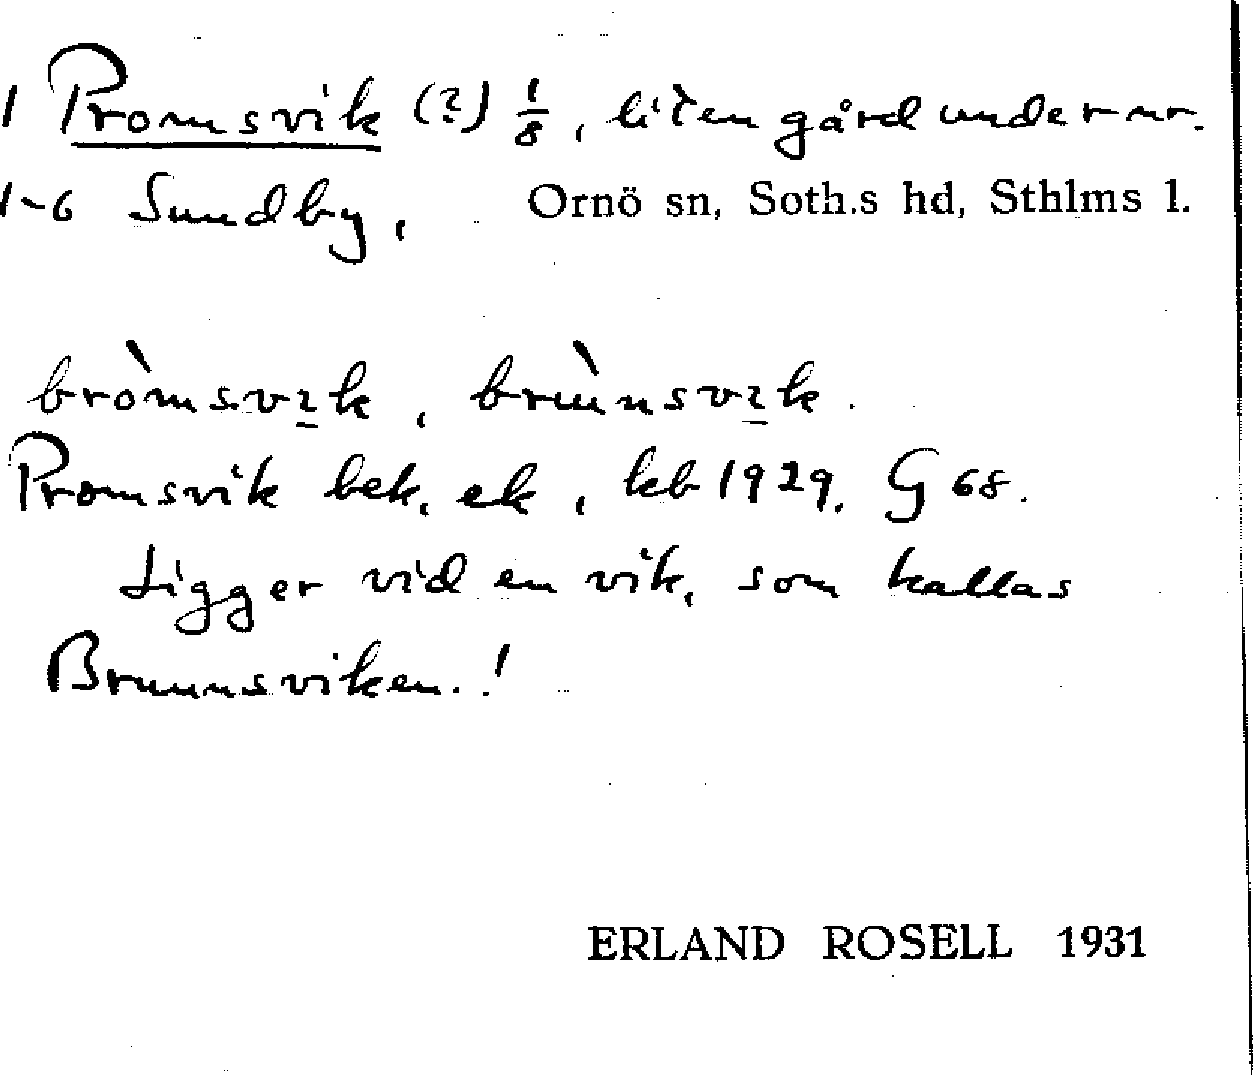 1 Promsvik (?) 1/8, liten gård under nr.
1-6 Sundby, Ornö sn, Soth.s hd, Sthlms l.
bròmsvık, brùnsvık.
Promsvik bek. ek, kb 1929. G 68.
Ligger vid en vik, som kallas
Brunnsviken.!
ERLAND ROSELL 1931